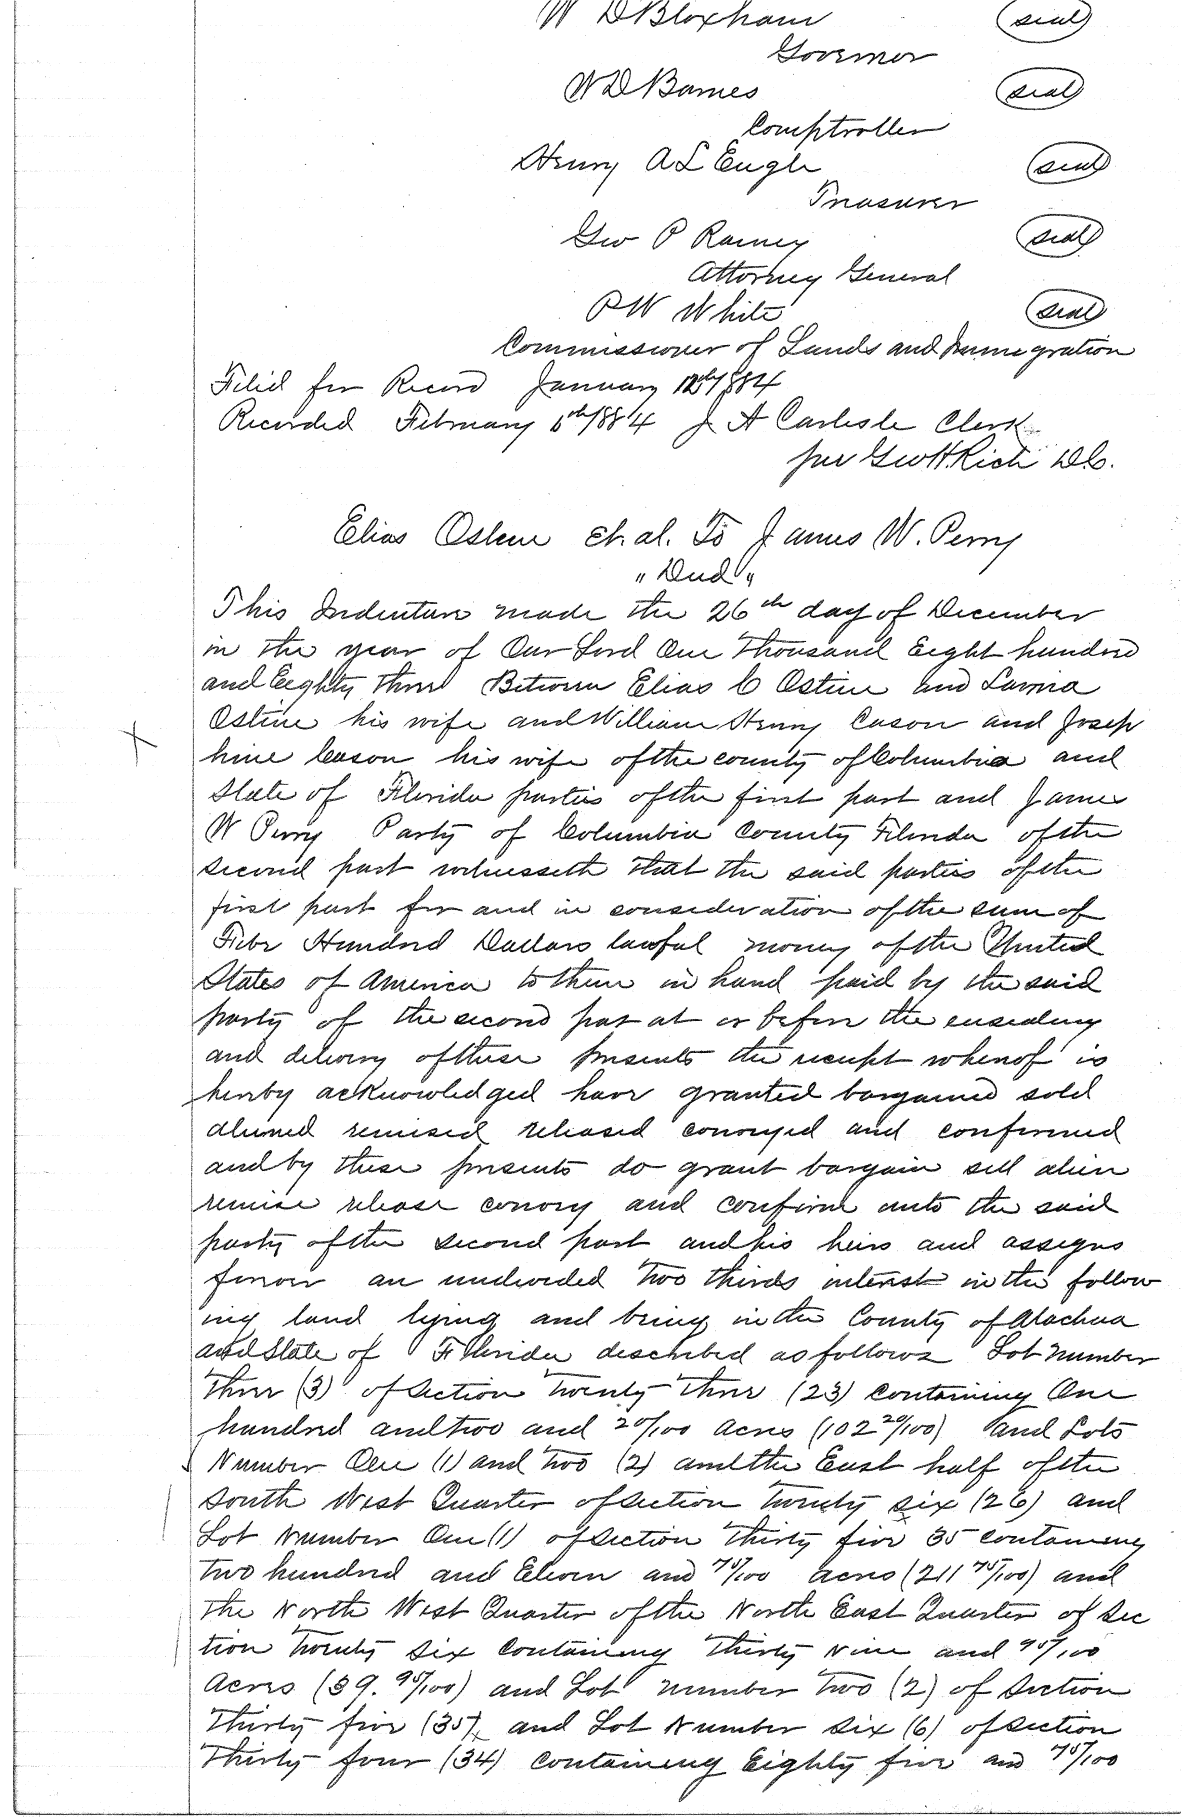 W D Bloxham (seal)
Governor
W D Barnes (seal)
Comptroller
Henry A L Engle (seal)
Treasurer
Geo P Raney (seal)
Attorney General
P W White (seal)
Commissioner of Lands and Immigration
Filed for Record January 12th 1884
Recorded February 6th 1884 J A Carlisle Clerk
per Geo H Rich D.C.
Elias Osteen et. al. To James W. Perry
"Deed"
This Indenture made the 26th day of December
in the year of Our Lord One thousand Eight hundred
and Eighty three Between Elias C Osteen and
Osteen his wife and William Henry Cason and Josep
hine Cason his wife of the county of Columbia and
State of Florida parties of the first part and James
W Perry Party of Columbia County Florida of the
second part witnesseth that the said parties of the
first part for and in consideration of the sum of
Hundred Dollars lawful money of the United
States of America to them in hand paid by the said
party of the second part at or before the ensealing
and delivery of these presents the receipt whereof is
hereby acknowledged have granted bargained sold
aliened remised released conveyed and confirmed
and by these presents do grant bargain sell alien
remise release convey and confirm unto the said
party of the second part and his heirs and assigns
forever an undivided two thirds interest in the follow
ing land lying and being in the County of Alachua
and State of Florida described as follows Lot Number
Three (3) of Section Twenty Three (23) containing One
hundred and two and 20/100 acres (102 20/100) and Lots
Number One (1) and two (2) and the East half of the
South West Quarter of Section Twenty six (26) and
Lot Number One (1) of Section Thirty five 35 containing
Two hundred and Eleven and 75/100 acres (211 75/100) and
the North West Quarter of the North East Quarter of Sec
tion Twenty six containing Thirty Nine and 95/100
Acres (39. 95/100) and Lot number Two (2) of Section
Thirty five (35), and Lot Number six (6) of Section
Thirty four (34) containing Eighty five and 75/100